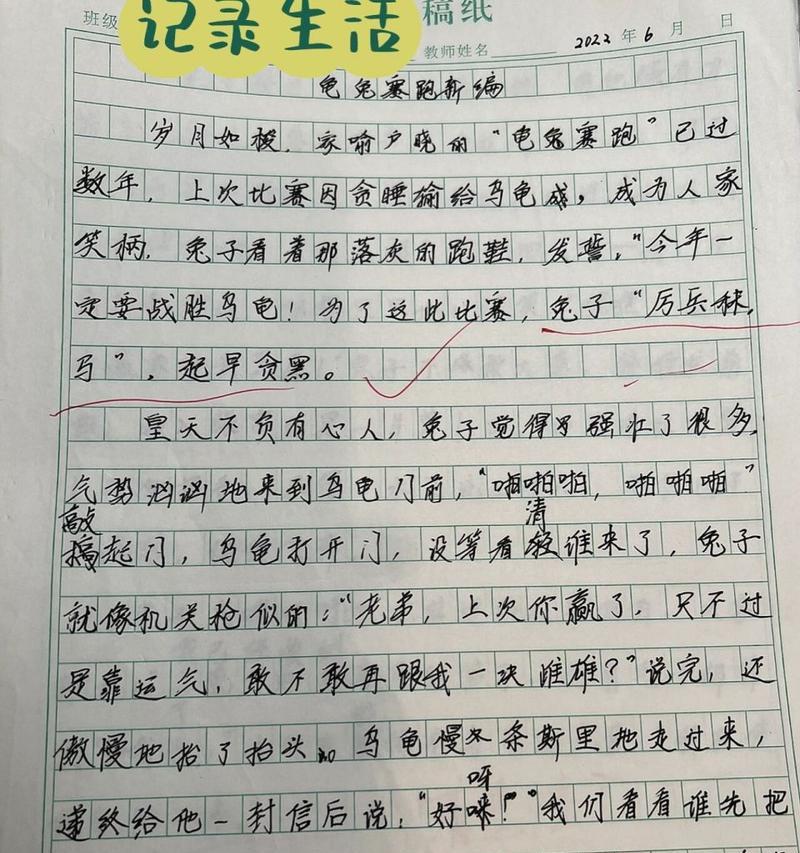 记录生活
稿纸
班级
教师姓名
2022 年 6 月 日
龟兔赛跑新编
岁月如梭，家喻户晓的“龟兔赛跑”已过
数年，上次比赛因贪睡输给乌龟，成为人家
笑柄，兔子看着那落灰的跑鞋，发誓，“今年一
定要战胜乌龟！为了这此比赛，兔子“厉兵秣
马”，起早贪黑。
皇天不负有心人，兔子觉得强壮了很多，
气势汹汹地来到乌龟门前，“啪啪啪，啪啪啪”
敲起门，乌龟打开门，没等看清谁来了，兔子
就像机关枪似的：“老弟，上次你赢了，只不过
是靠运气，敢不敢再跟我一决雌雄？”说完，还
傲慢地抬了抬头。乌龟慢条斯里地走过来，
递终给他一封信后说，“好呀！”“我们看看谁先把